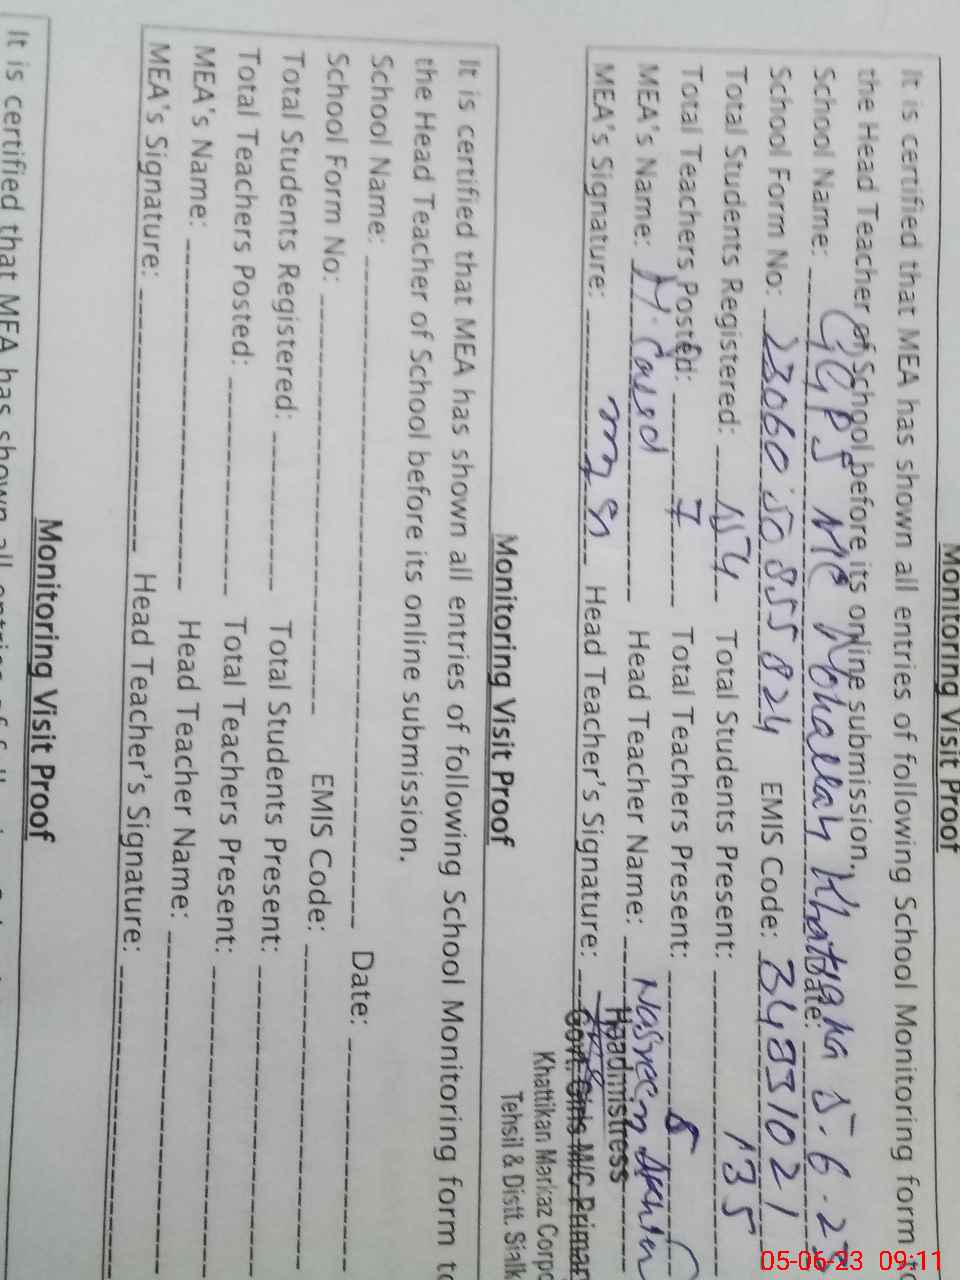 Monitoring Visit Proof
It is certified that MEA has shown all entries of following School Monitoring form t
the Head Teacher of School before its online submission.
School Name: GGPS MC Mohallah Khattiana Date: 5.6.23
School Form No: 2306050855824 EMIS Code: 34831021
Total Students Registered: 154 Total Students Present: 135
Total Teachers Posted: 7 Total Teachers Present:
MEA's Name: Head Teacher Name: Nasreen Akhtar
MEA's Signature: Head Teacher's Signature:
Headmistress
Govt. Girls M/C Primar
Khattikan Markaz Corpo
Tehsil & Distt. Sialk
Monitoring Visit Proof
It is certified that MEA has shown all entries of following School Monitoring form to
the Head Teacher of School before its online submission.
School Name: Date:
School Form No: EMIS Code:
Total Students Registered: Total Students Present:
Total Teachers Posted: Total Teachers Present:
MEA's Name: Head Teacher Name:
MEA's Signature: Head Teacher's Signature:
Monitoring Visit Proof
It is certified that MEA has shown all entries of
05-06-23 09:11